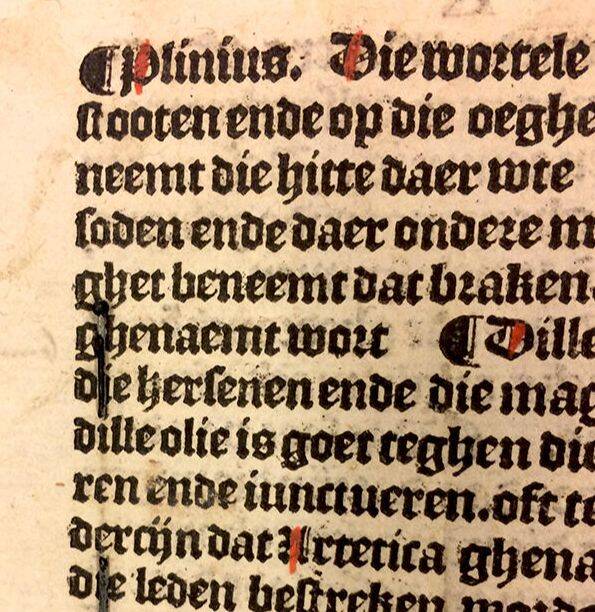 ¶Plinius. Die wortele
stooten ende op die oeghe
neemt die hitte daer wte
soden ende daer ondere m
ghet beneemt dat braken
ghenaemt wort ¶Dille
die hersenen ende die mag
dille olie is goet teghen die
ren ende iunctueren.oft te
dercijn dat Artetica ghena
die leden bestreken